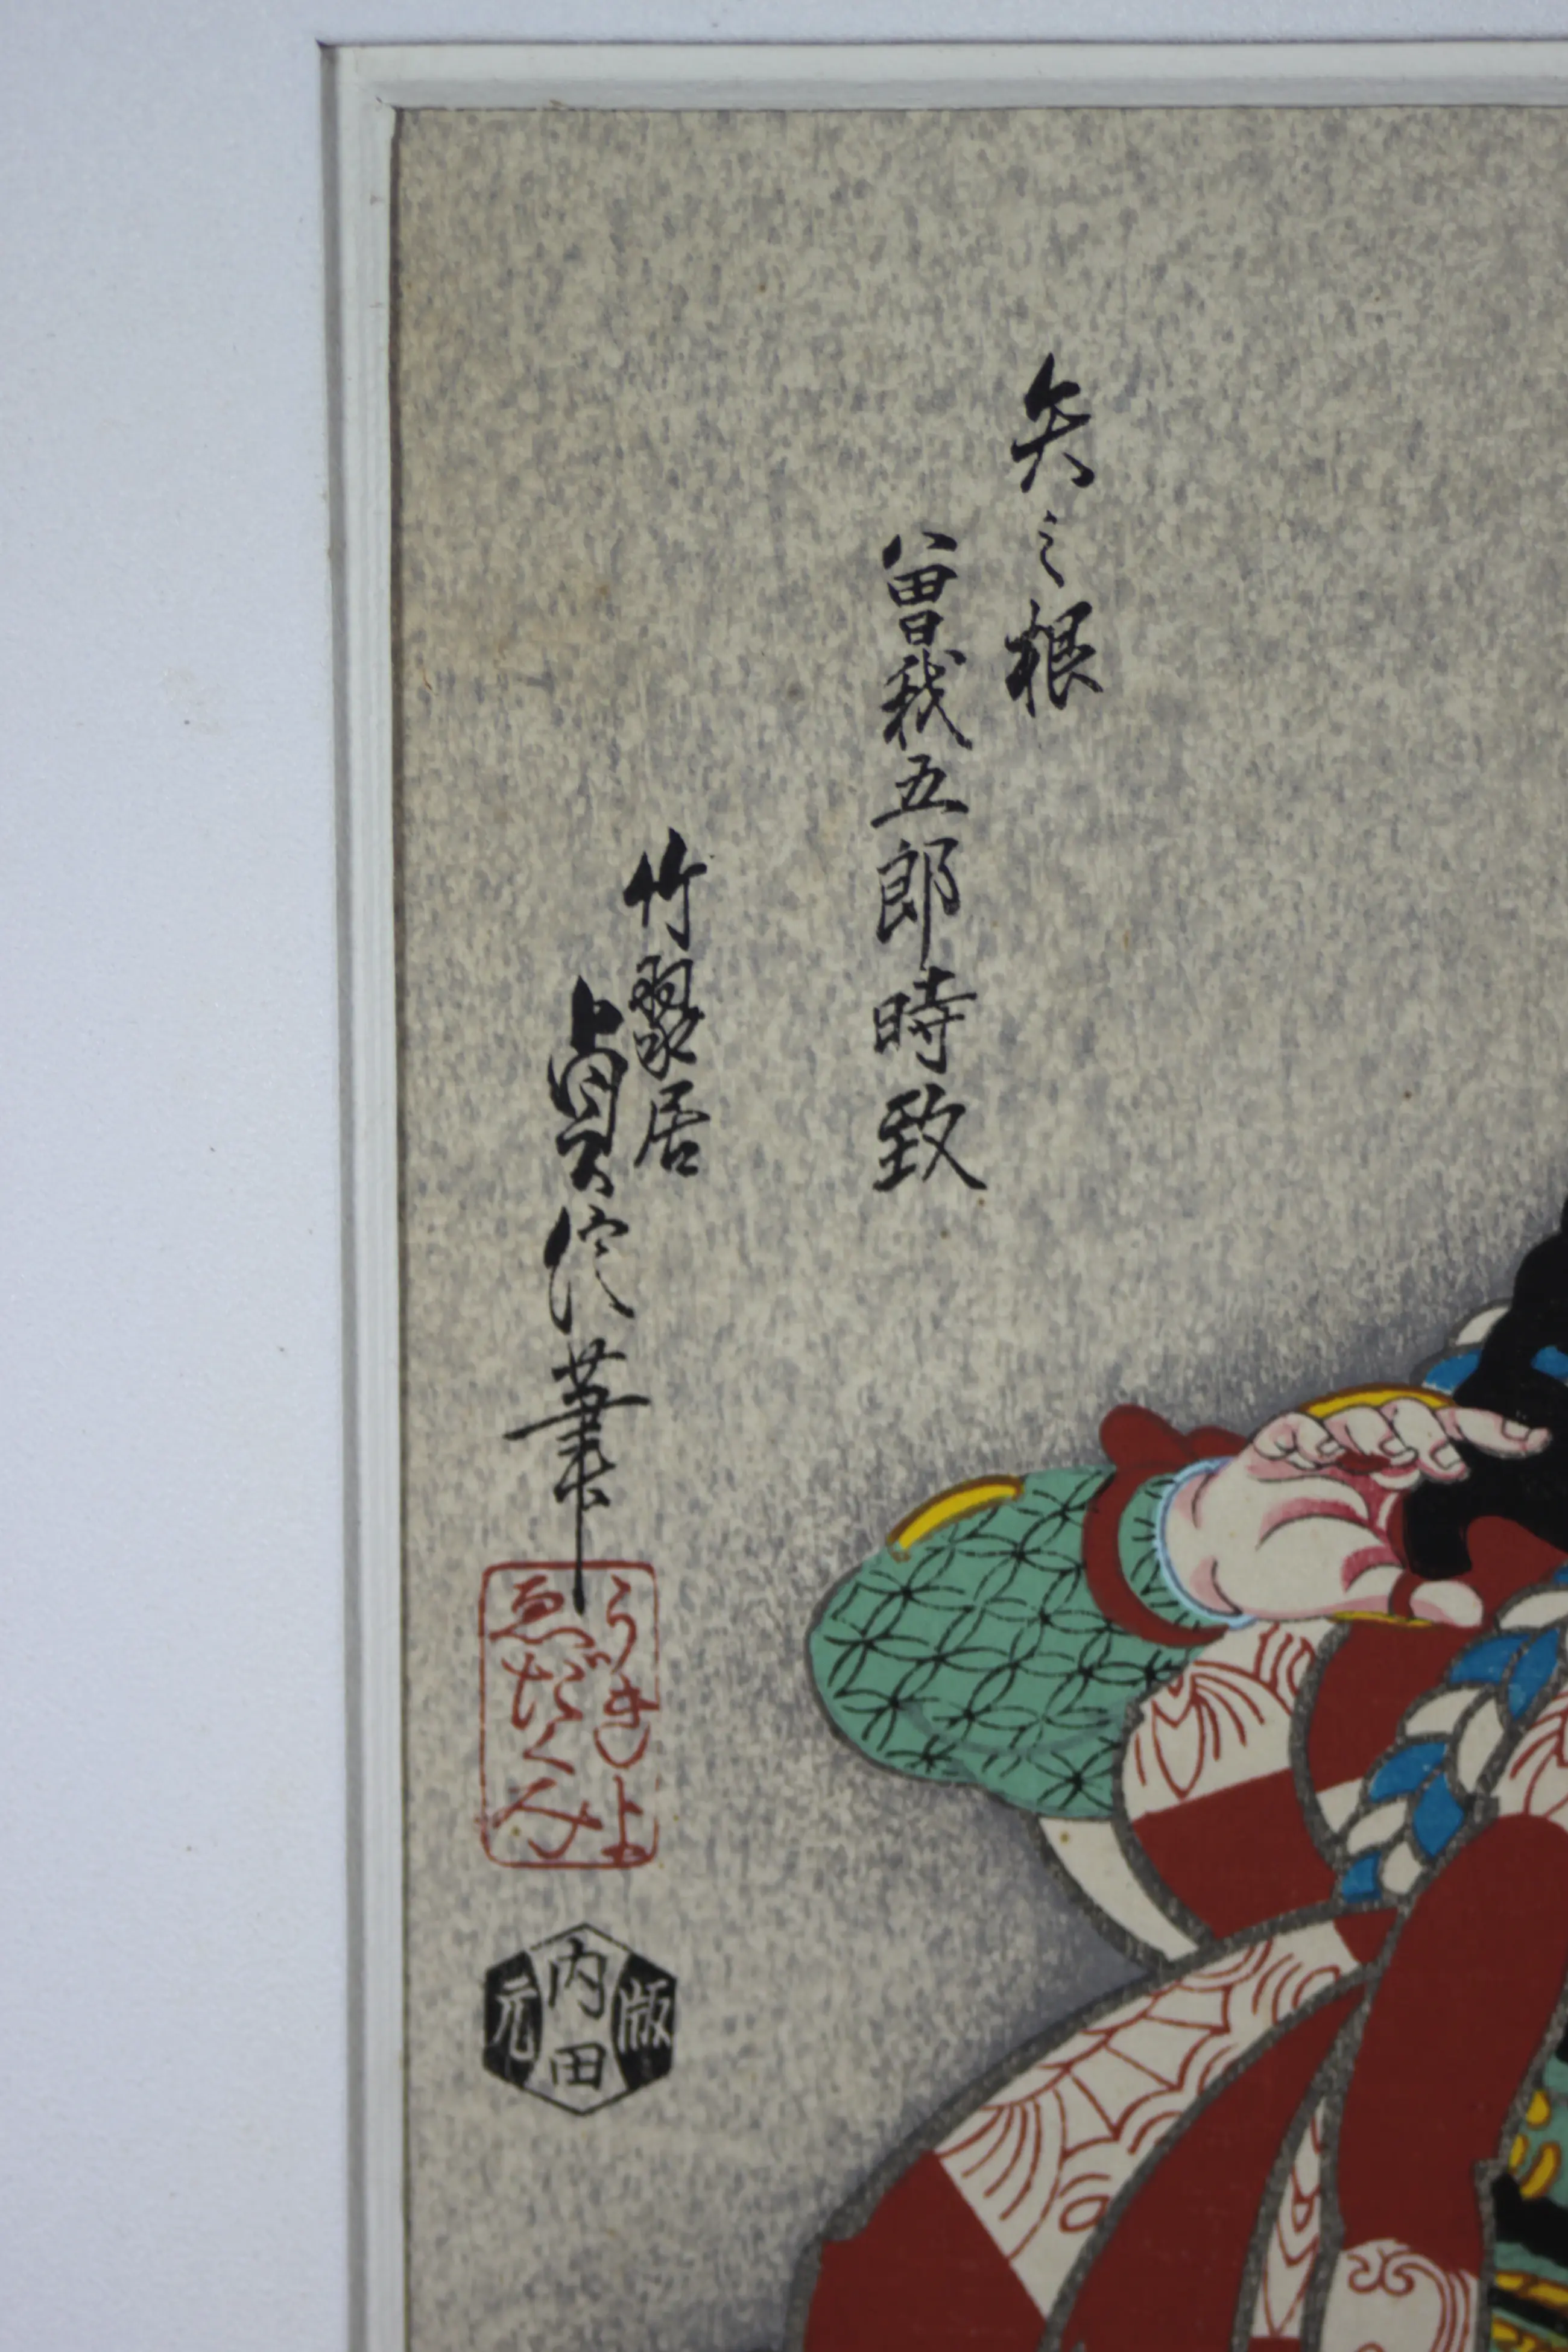 矢之根
曽我五郎時致
竹翠居
貞信筆
うきよ
ゑだくみ
版
内田
元